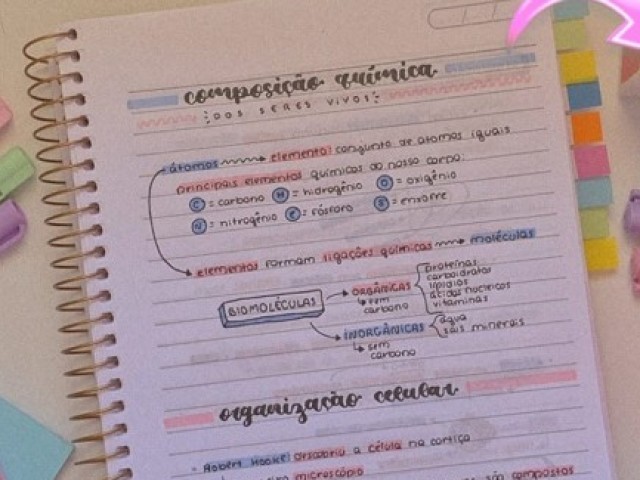 composição química
dos seres vivos
átomos → elemento: conjunto de átomos iguais
principais elementos químicos do nosso corpo:
C = carbono H = hidrogênio O = oxigênio
N = nitrogênio P = fósforo S = enxofre
elementos formam ligações químicas → moléculas
BIOMOLÉCULAS
ORGÂNICAS
↳ tem
carbono
proteínas
carboidratos
lipídios
ácidos nucleicos
vitaminas
INORGÂNICAS
↳ sem
carbono
água
sais minerais
organização celular
Robert Hooke: descobriu a célula na cortiça
microscópio
são compostos